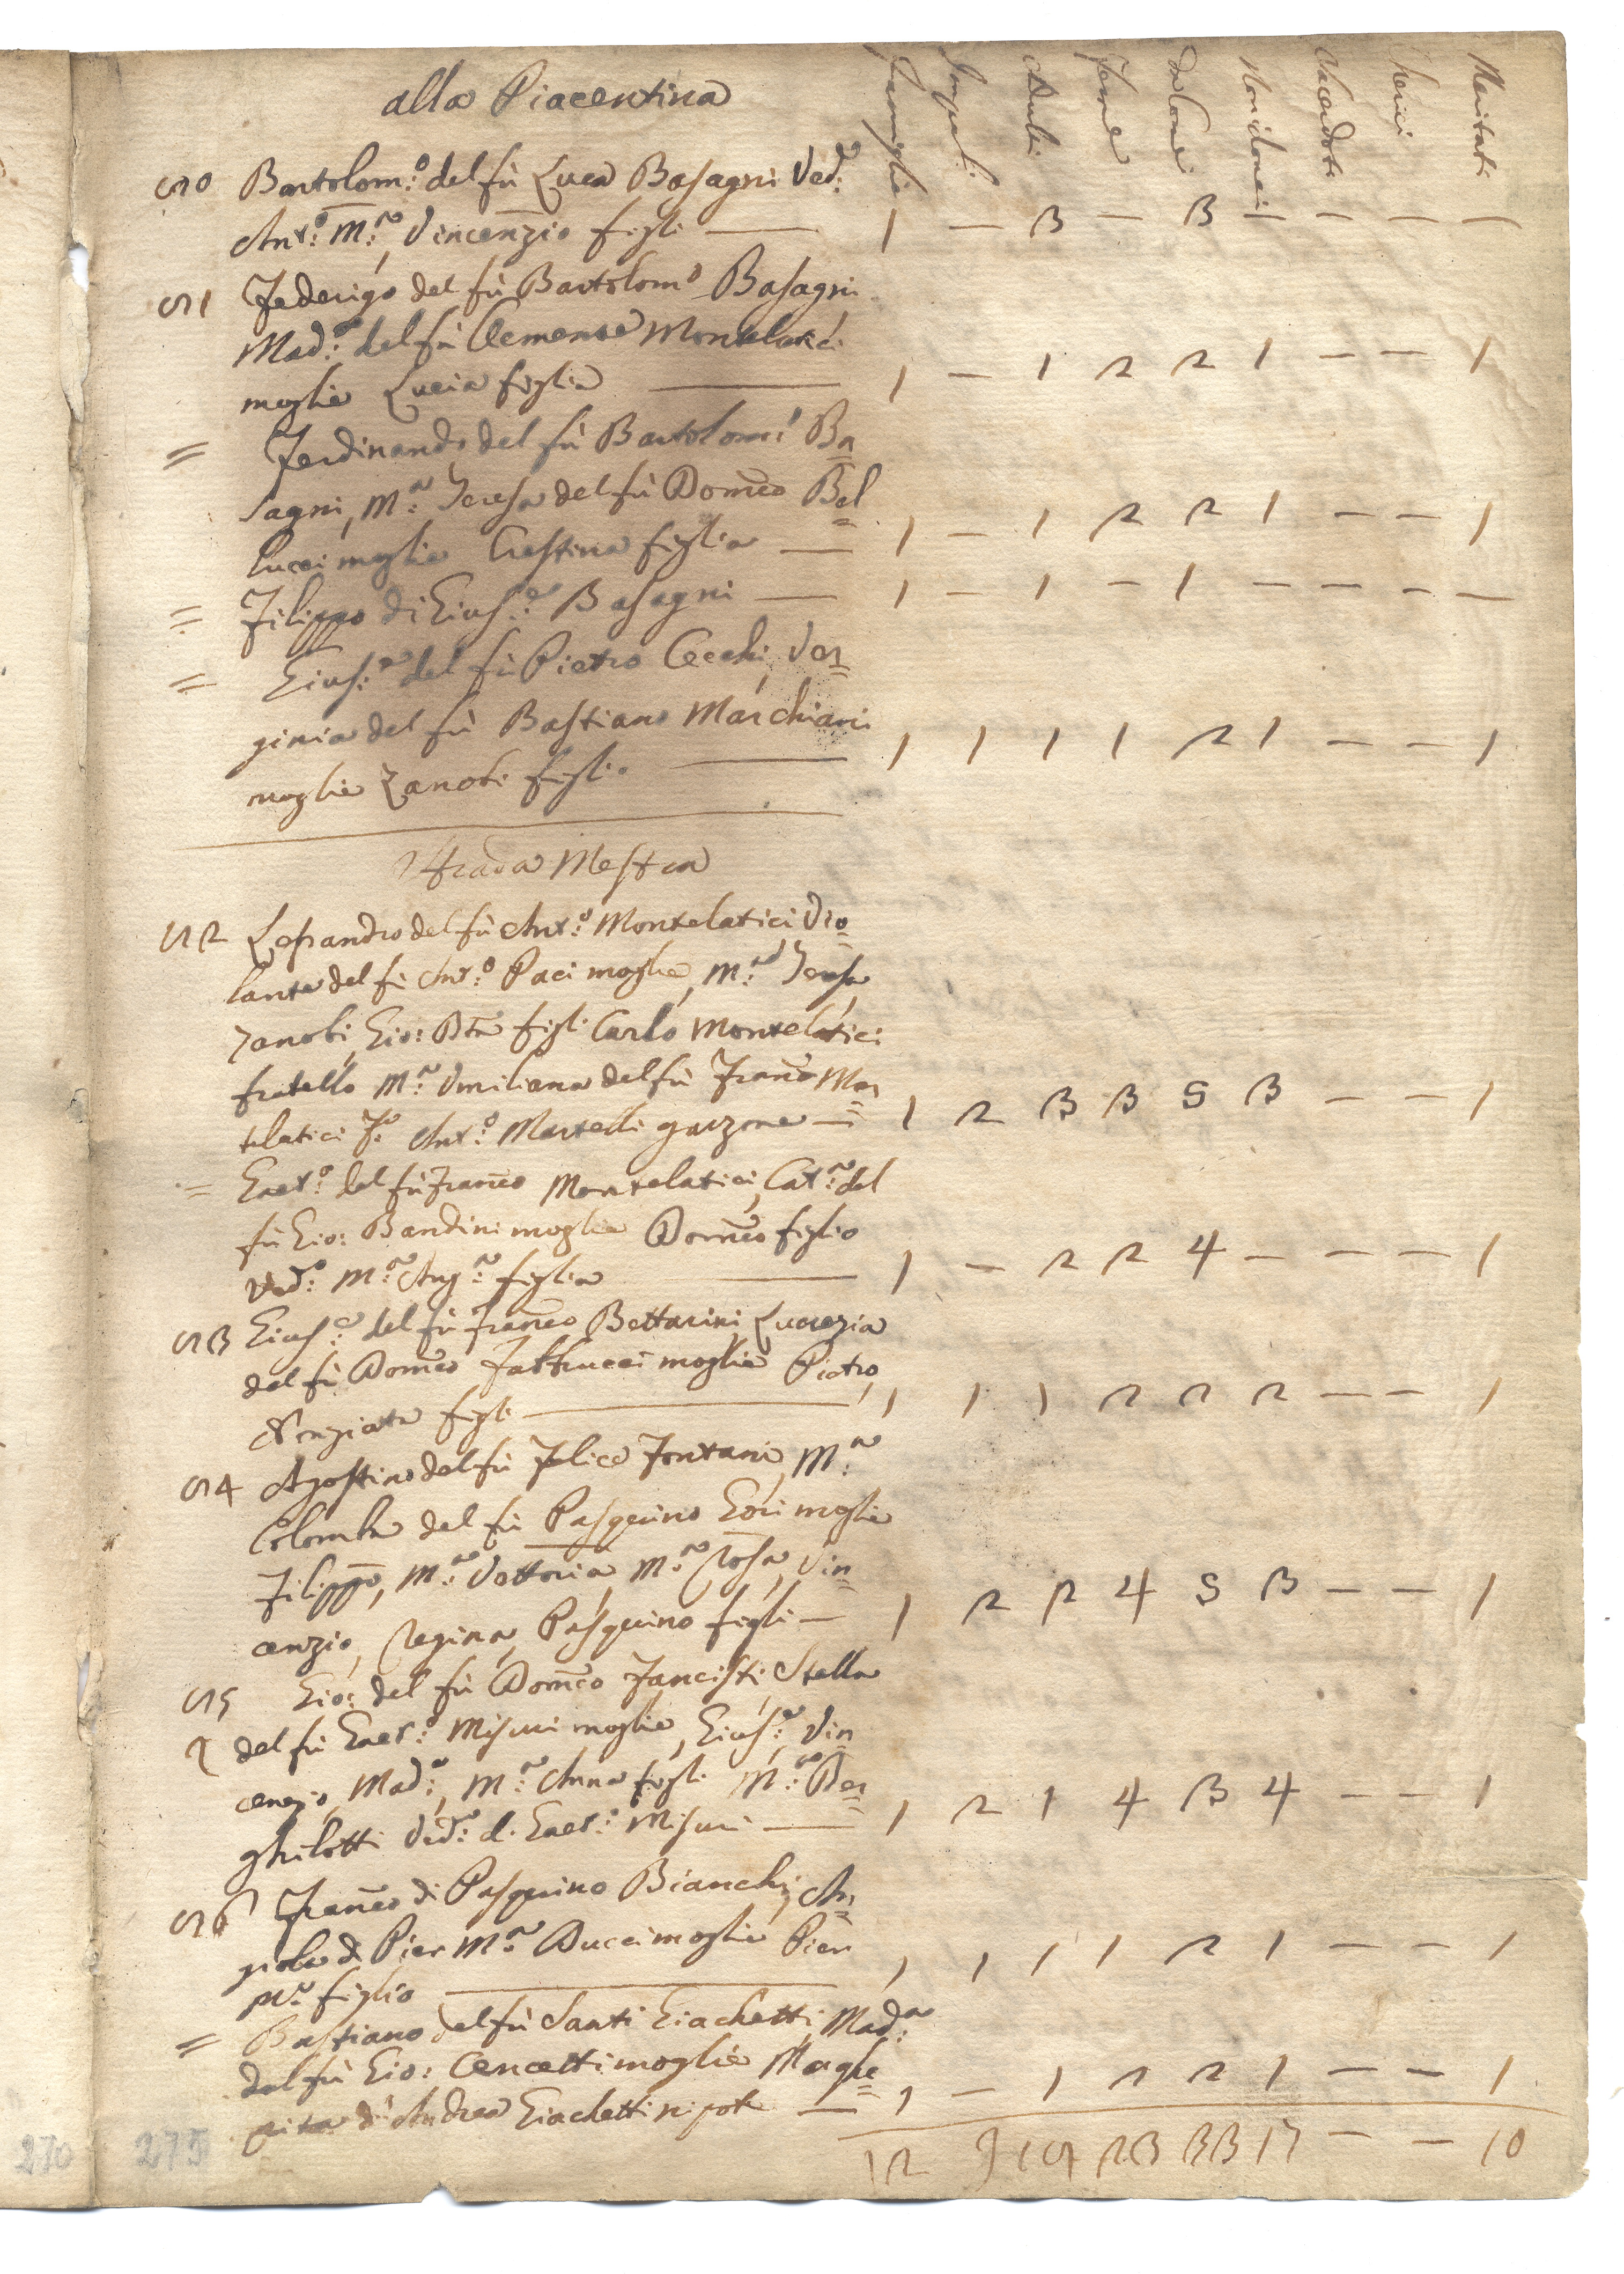 alla Piacentina
Famiglie Impuberi Adulti Femine Idonei Non idonei Sacerdoti Cherici Maritati
50 Bartolom:o del fù Luca Basagni Ved:o
Ant:o M:a, Vincenzio figli — 1 — 3 — 3 — — — —
51 Federigo del fù Bartolom:o Basagni
Mad:a del fù Clemente Montelatici
moglie Lucia figlia — 1 — 1 2 2 1 — — 1
= Ferdinando del fù Bartolom:o Ba=
sagni, M:a Teresa del fù Dom:co Bel=
lucci moglie Crestina figlia — 1 — 1 2 2 1 — — 1
= Filippo di Gius:e Basagni — 1 — 1 — 1 — — — —
= Gius:e del fù Pietro Cecchi, Ver=
ginia del fù Bastiano Marchiani
moglie Zanobi figlio — 1 1 1 1 2 1 — — 1
Strada Mestra
52 Lesandro del fù Ant:o Montelatici Vio=
lante del fù Ant:o Paci moglie, M:a Teresa
Zanobi, Gio: Bta figli Carlo Montelatici
fratello M:a Umiliana del fù Fran:co Mon=
telatici Ant:o Martelli garzone — 1 2 3 3 5 3 — — 1
= Gaet:o del fù Fran:co Montelatici, Cat:a del
fù Gio: Bandini moglie Dom:co figlio
Ved:o M:a Ang:a figlia — 1 — 2 2 4 — — — 1
53 Gius:e del fù Fran:co Bettarini Lucrezia
del fù Dom:co Fabbrucci moglie Pietro,
Nunziata figli — 1 1 1 2 2 2 — — 1
54 Agostino del fù Felice Fontani, M:a
Colomba del fù Pasquino Gori moglie
Filippo, M:a Vettoria M:a Rosa, Vin=
cenzio, Regina, Pasquino figli — 1 2 2 4 5 3 — — 1
55 Gio: del fù Dom:co Fancisti Stella
del fù Gaet:o Misuri moglie, Gius:e, Vin=
cenzio, Mad:a, M:a Anna figli M:a Ber=
ghilotti Ved:a d. Gaet:o Misuri — 1 2 1 4 3 4 — — 1
56 Fran:co di Pasquino Bianchi, An=
giola di Pier M:a Ducci moglie Pier
M:a figlio — 1 1 1 1 2 1 — — 1
= Bastiano del fù Santi Giachetti, Mad:a
del fù Gio: Cencetti moglie Marghe=
rita di Andrea Giachetti nipote — 1 — 1 2 2 1 — — 1
12 9 19 23 33 17 — — 10
270 275